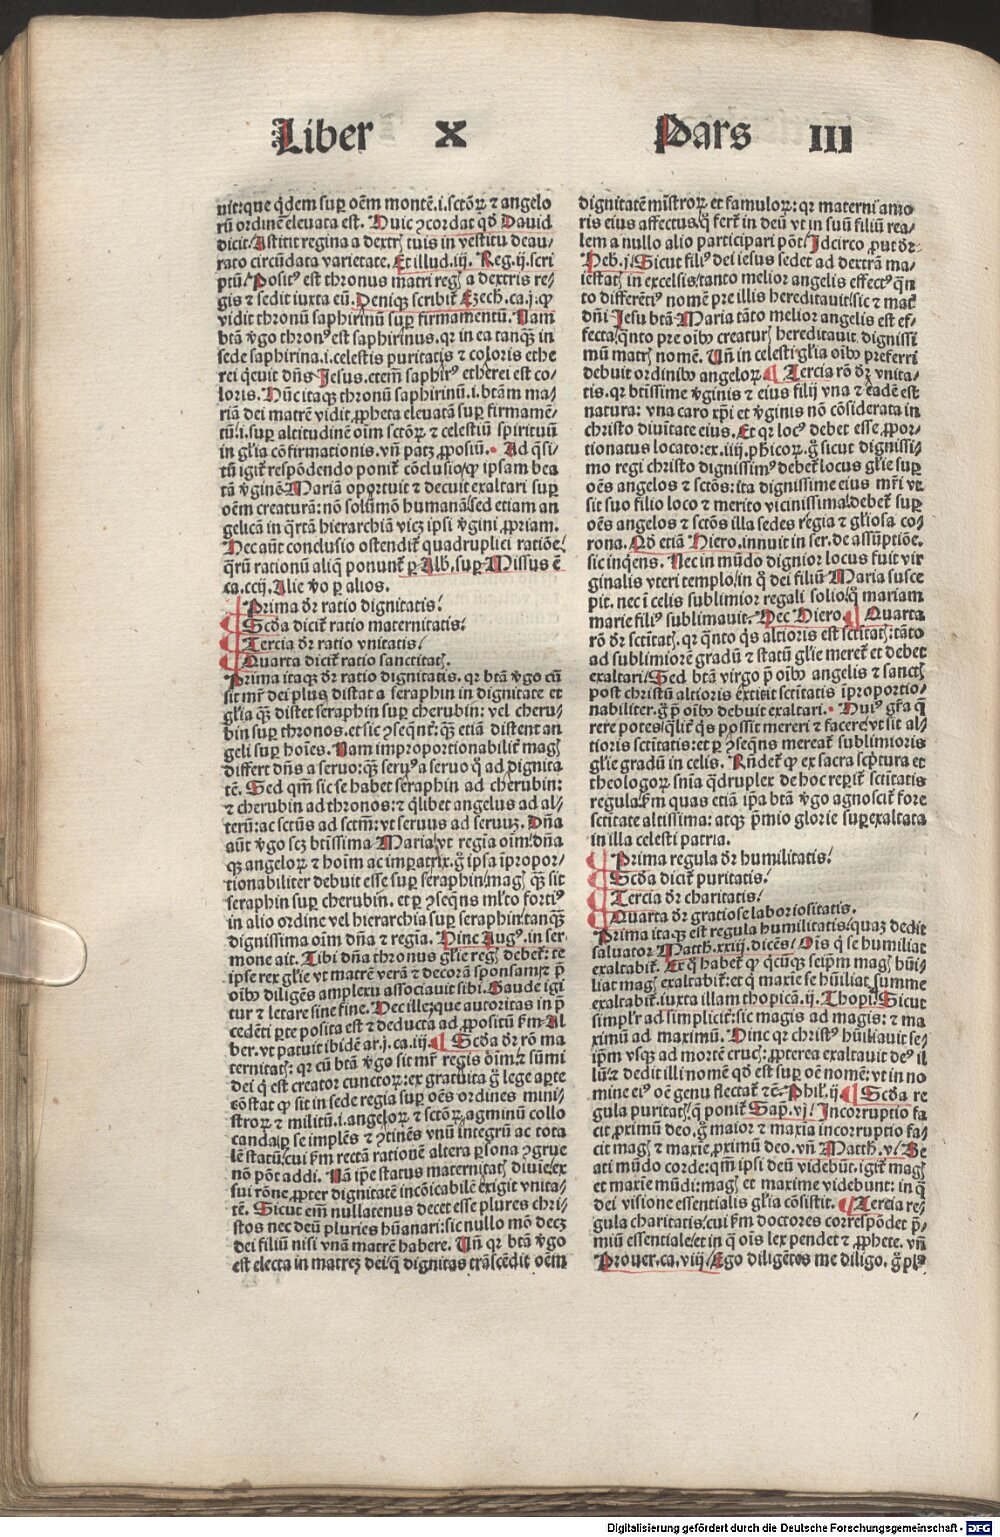 Liber X Pars III
uit: que qͥdem suꝑ oēm montē .i. sctōꝝ ⁊ angelo
rū ordinē eleuata est. Huic ↄcordat qđ Dauid
dicit / Astitit regina a dextrꝭ tuis in vestitu deau/
rato circūdata varietate. Et illud .iij. Reg. ij. scri
ptū / Positꝰ est thronus matri regꝭ a dextris re/
gis ⁊ sedit iuxta eū. Deniqꝫ scribit̃ Ezech. ca. j. ꝙ
vidit thronū saphirinū suꝑ firmamentū. Nam
btā v̄go thronꝰ est saphirinus. qꝛ in ea tanqꝫ in
sede saphirina .i. celestis puritatis ⁊ coloris ethe
rei qͥeuit dn̄s Jesus. etem̄ saphirꝰ etherei est co/
loris. Hūc itaqꝫ thronū saphirinū .i. btām ma/
riā dei matrē vidit ꝓpheta eleuatā suꝑ firmamē/
tū .i. suꝑ altitudinē oīm sctōꝝ ⁊ celestiū spirituū
in gl̄ia cōfirmationis. vn̄ patꝫ ꝓpositū. Ad qͥsi/
tū igit̃ respōdendo ponit̃ cōclusio / ꝙ ipsam bea
tā v̄ginē Mariā oportuit ⁊ decuit exaltari suꝑ
oēm creaturā: nō solūmō humanā / sed etiam an
gelicā in qͣrtā hierarchiā vicꝫ ipsi v̄gini ꝓpriam.
Hec aūt conclusio ostendit̃ quadruplici ratiōe /
qͣrū rationū aliqͣ ponunt̃ ꝑ Alb. suꝑ Missus ē
ca. ccij. Alie v̄o ꝑ alios.
Prima dr̄ ratio dignitatis /
Scd̄a dicit̃ ratio maternitatis /
Tercia dr̄ ratio vnitatis /
Quarta dicit̃ ratio sanctitatꝭ.
Prima itaqꝫ dr̄ ratio dignitatis. qꝛ btā v̄go cū
sit mr̄ dei plus distat a seraphin in dignitate et
gl̄ia qꝫ̄ distet seraphin suꝑ cherubin: vel cheru/
bin suꝑ thronos. et sic ↄseqn̄t: qꝫ̄ etiā distent an
geli suꝑ hoīes. Nam improportionabilit̃ magꝭ
differt dn̄s a seruo: qꝫ̄ seruꝰ a seruo qͦ ad dignita
tē. Sed qm̄ sic se habet seraphin ad cherubin:
⁊ cherubin ad thronos: ⁊ qͥlibet angelus ad al/
terū: ac sctūs ad sctm̄: vt seruus ad seruū. Dn̄a
aūt v̄go scꝫ btīssima Maria / vt regia oīm / dn̄a
qꝫ angeloꝝ ⁊ hoīm ac imꝑatrix. gͦ ipsa īpropor/
tionabiliter debuit esse suꝑ seraphin / magꝭ qꝫ̄ sit
seraphin suꝑ cherubin. et ꝑ ↄseqn̄s ml̄to fortiꝰ
in alio ordine vel hierarchia suꝑ seraphin / tanqꝫ̄
dignissima oīm dn̄a ⁊ regīa. Hinc Augꝰ. in ser
mone ait. Tibi dn̄a thronus gl̄ie regꝭ debet̃: te
ipse rex gl̄ie vt matrē verā ⁊ decorā sponsam / ⁊ p̄
oībꝰ diligēs amplexu associauit sibi. Gaude igi
tur ⁊ letare sine fine. Hec ille / que autoritas in p̄
cedēti ꝑte posita est ⁊ deducta ad ꝓpositū ẜm Al
ber. vt patuit ibidē ar. j. ca. iij. Scd̄a dr̄ rō ma
ternitatꝭ: qꝛ cū btā v̄go sit mr̄ regis oīm / ⁊ sūmi
dei qͥ est creator cunctoꝝ: ex gratuita gͦ lege aꝑte
cōstat ꝙ sit in sede regia suꝑ oēs ordines mini/
stroꝝ ⁊ militū .i. angeloꝝ ⁊ sctōꝝ / agminū collo
canda / ꝑ se implēs ⁊ ↄtinēs vnū integrū ac tota
lē statū / cui ẜm rectā rationē altera ꝑsona ↄgrue
nō pōt addi. Nā ip̄e status maternitatꝭ diuie / ex
sui rōne ꝓpter dignitatē incōicabilē exigit vnita/
tē. Sicut em̄ nullatenus decet esse plures chri/
stos nec deū pluries hūanari: sic nullo mō decꝫ
dei filiū nisi vnā matrē habere. Un̄ qꝛ btā v̄go
est electa in matreꝫ dei / qͣ dignitas trāscēdit oēm
dignitatē mīstroꝝ et famuloꝝ: qꝛ materni amo
ris eius affectus / qͥ fert̃ in deū vt in suū filiū rea/
lem a nullo alio participari pōt / Idcirco ꝓut dr̄
Heb. j / Sicut filiꝰ dei iesus sedet ad dextrā ma/
iestatꝭ in excelsis / tanto melior angelis effectꝰ qn̄
to differētiꝰ nomē pre illis hereditauit / sic ⁊ mat̃
dn̄i Jesu btā Maria tāto melior angelis est ef/
fecta / qn̄to pre oībꝰ creaturꝭ hereditauit dignissi
mū matrꝭ nomē. Un̄ in celesti gl̄ia oībꝰ preferri
debuit ordinibꝰ angeloꝝ. Tercia rō dr̄ vnita/
tis. qꝛ btīssime v̄ginis ⁊ eius filij vna ⁊ eadē est
natura: vna caro xp̄i et v̄ginis nō cōsiderata in
christo diuītate eius. Et qꝛ locꝰ debet esse ꝓpor/
tionatus locato: ex .iiij. ph̄icoꝝ. gͦ sicut dignissi/
mo regi christo dignissimꝰ debet̃ locus gl̄ie suꝑ
oēs angelos ⁊ sctōs: ita dignissime eius mr̄i vt
sit suo filio loco ⁊ merito vicinissima / debet̃ suꝑ
oēs angelos ⁊ sctōs illa sedes regia ⁊ gl̄iosa co/
rona. Qđ etiā Hiero. innuit in ser. de assūptiōe.
sic inqͥens. Nec in mūdo dignior locus fuit vir
ginalis vteri templo / in qͦ dei filiū Maria susce
pit. nec ī celis sublimior regali solio / qͦ mariam
marie filiꝰ sublimauit. Hec Hiero. Quarta
rō dr̄ sctītatꝭ. qꝛ qn̄to qͥs altioris est sctītatꝭ: tāto
ad sublimiorē gradū ⁊ statū gl̄ie meret̃ et debet
exaltari / Sed btā virgo p̄ oībꝰ angelis ⁊ sanctꝭ
post christū altioris extitit sctītatis īproportio/
nabiliter. gͦ p̄ oībꝰ debuit exaltari. Huiꝰ gr̄a q̄
rere potes / qͣlit̃ qͥs possit mereri ⁊ facere / vt sit al/
tioris sctītatis: et ꝑ ↄseqn̄s mereat̃ sublimioris
gl̄ie gradū in celis. Rn̄det̃ ꝙ ex sacra scp̄tura et
theologoꝝ sn̄ia qͣdruplex de hoc reꝑit̃ sctītatis
regula / ẜm quas etiā ip̄a btā v̄go agnoscit̃ fore
sctītate altissima: atqꝫ p̄mio glorie suꝑexaltata
in illa celesti patria.
Prima regula dr̄ humilitatis /
Scd̄a dicit̃ puritatis /
Tercia dr̄ charitatis /
Quarta dr̄ gratiose laboriositatis.
Prima itaqꝫ est regula humilitatis / quaꝫ dedit
saluator Matth̄. xxiij. dicēs / Oīs qͥ se humiliat
exaltabit̃. Ex qͦ habet̃ ꝙ qͥcūqꝫ seip̄m magꝭ hūi/
liat magꝭ exaltabit̃: et qͥ maxīe se hūiliat summe
exaltabit̃. iuxta illam thopicā .ij. Thopiꝰ. Sicut
simpl̄r ad simplicit̃: sic magis ad magis: ⁊ ma
ximū ad maximū. Hinc qꝛ christꝰ hūiliauit se/
ip̄m vsqꝫ ad mortē crucꝭ: ꝓpterea exaltauit deꝰ il
lū / ⁊ dedit illi nomē qđ est suꝑ oē nomē: vt in no
mine eiꝰ oē genu flectat̃ ⁊c̄. Phil̄. ij Scd̄a re
gula puritatꝭ / qͣ ponit̃ Sap̄. vj / Incorruptio fa
cit ꝓximū deo. gͦ maior ⁊ maxīa incorruptio fa/
cit magꝭ ⁊ maxīe ꝓximū deo. vn̄ Matth̄. v / Be
ati mūdo corde: qm̄ ipsi deū videbūt. igit̃ magꝭ
et maxīe mūdi: magꝭ et maxime videbunt: in qͣ
dei visione essentialis gl̄ia cōsistit. Tercia re/
gula charitatis / cui ẜm doctores correspōdet p̄/
miū essentiale / et in qͣ oīs lex pendet ⁊ ꝓphete. vn̄
Prouer. ca. viij / Ego diligētes me diligo. gͦ plꝰ
Digitalisierung gefördert durch die Deutsche Forschungsgemeinschaft - DFG